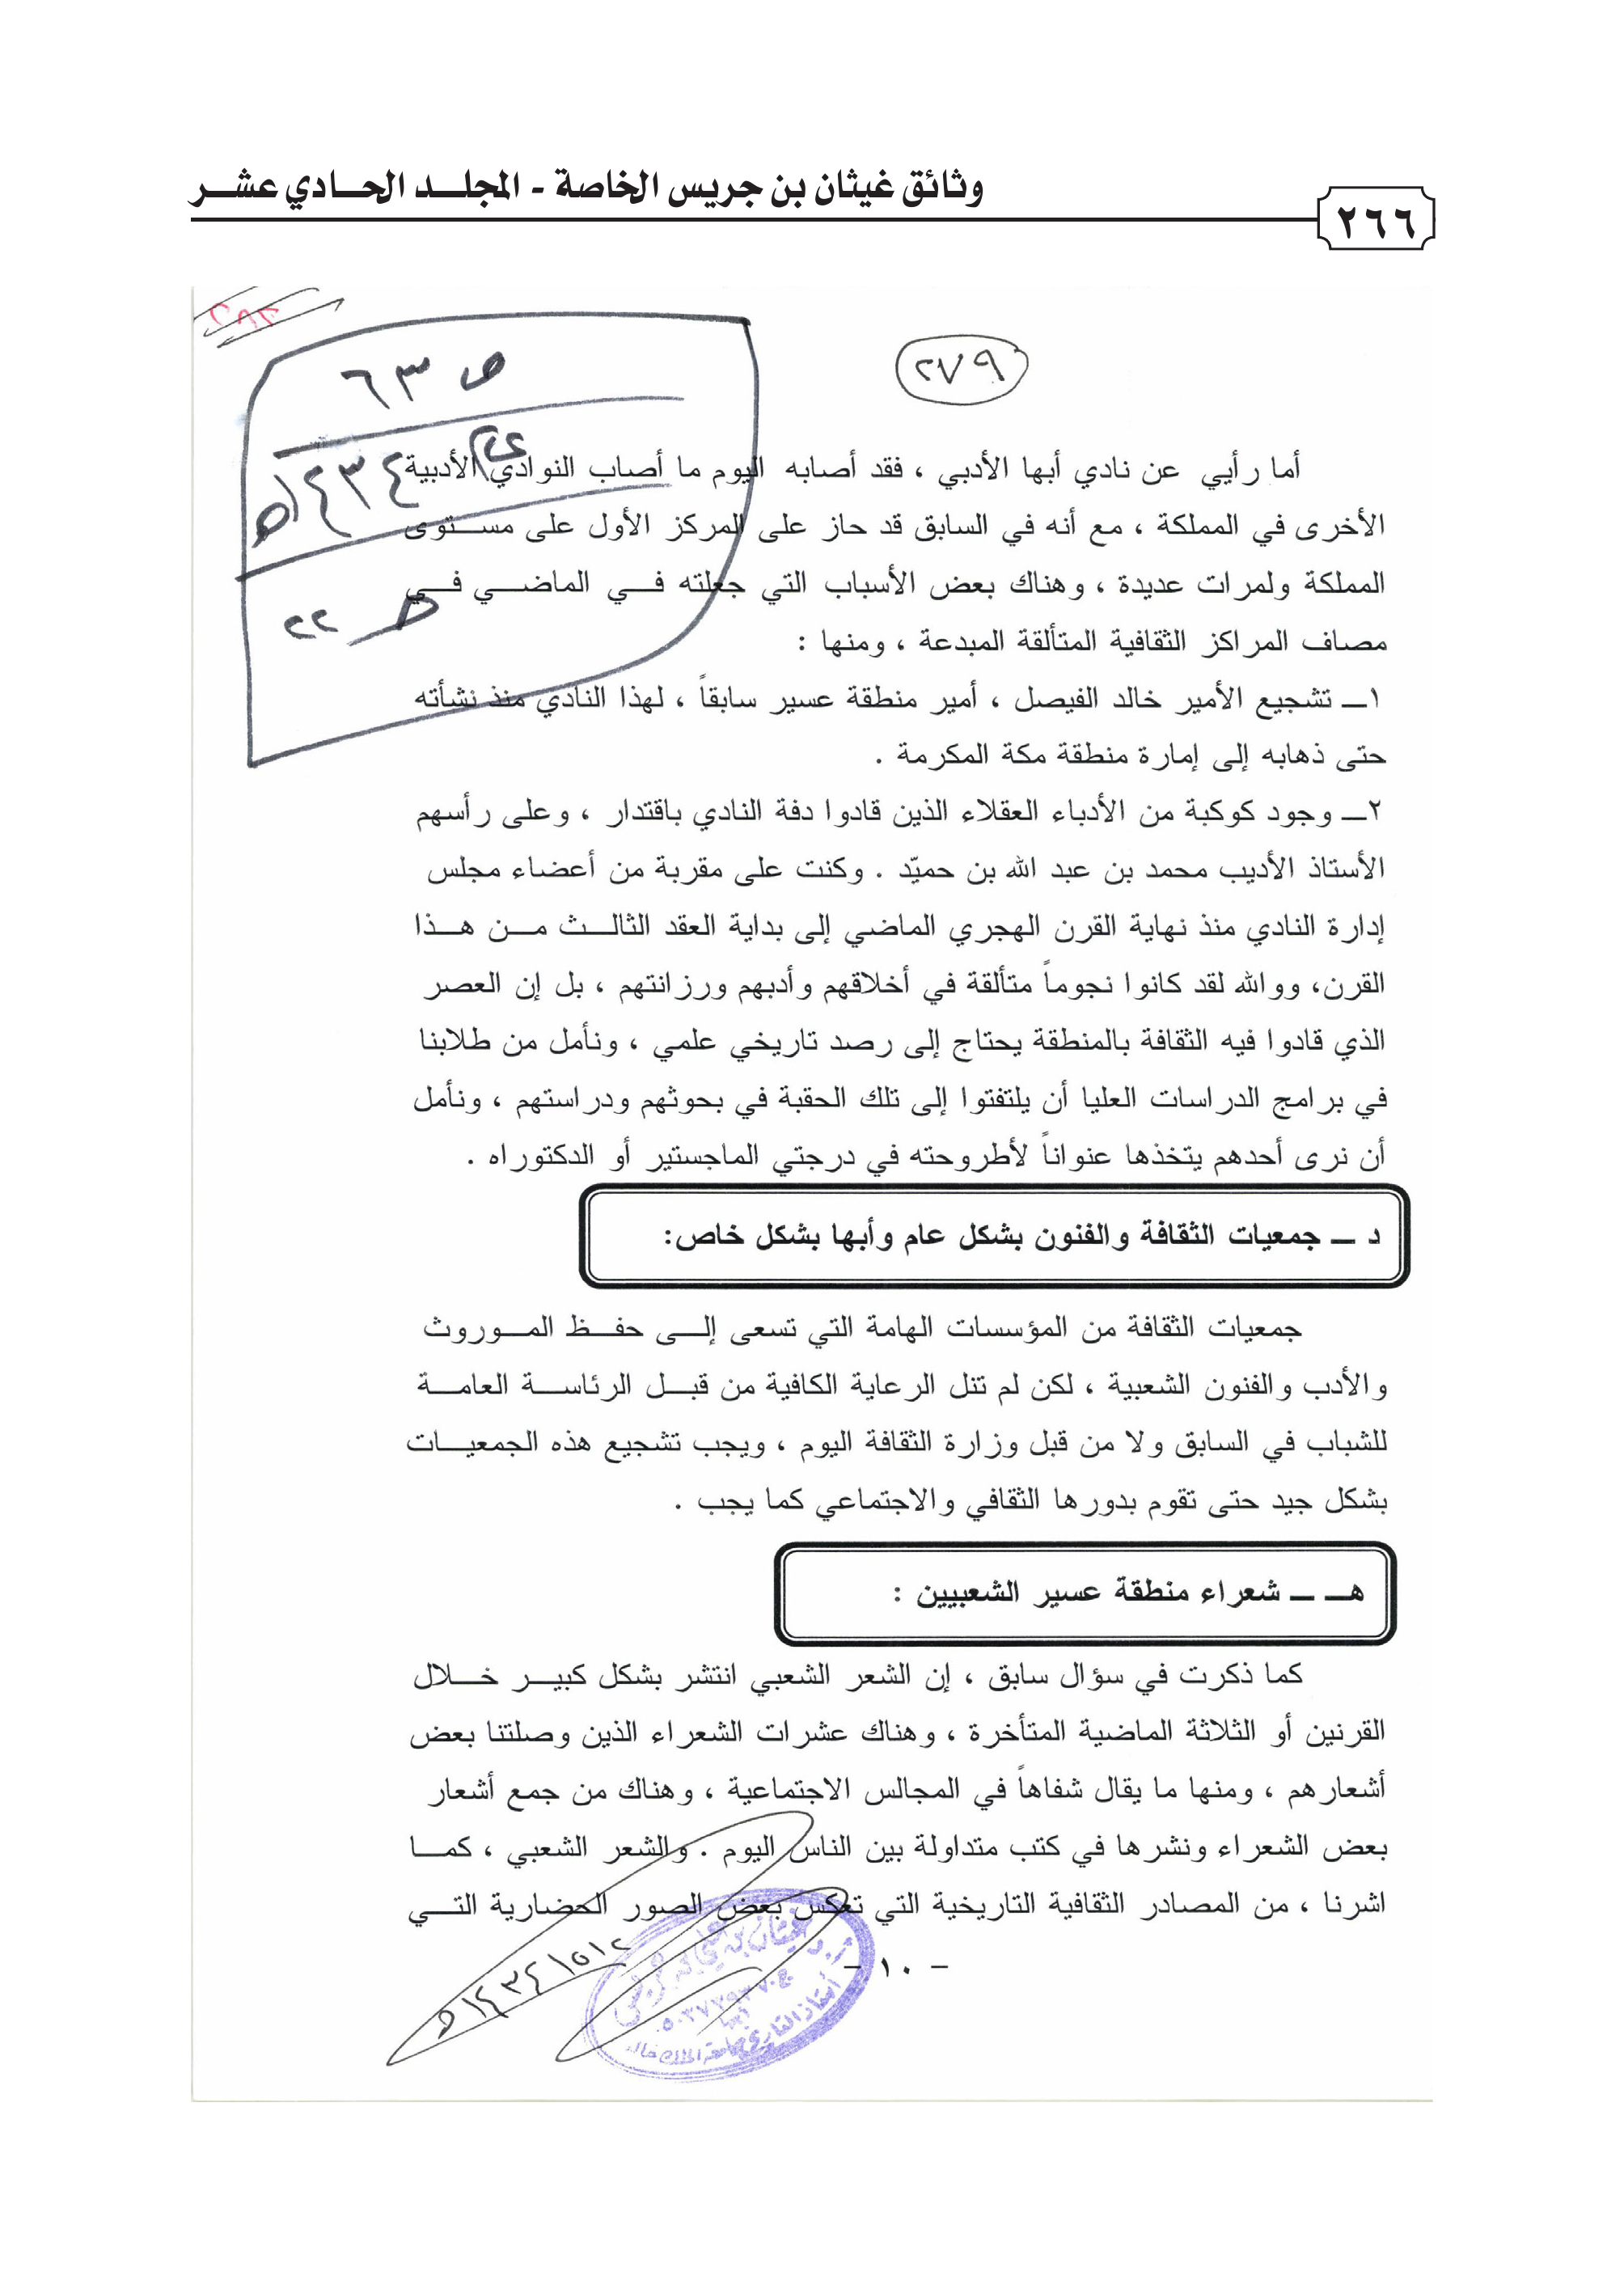 وثائق غيثان بن جريس الخاصة - المجلـد الحـادي عشـر
٢٦٦
٢٧٩
ص ٦٣
١٤٣٤هـ
ح ٢٢
أما رأيي عن نادي أبها الأدبي ، فقد أصابه اليوم ما أصاب النوادي الأدبية
الأخرى في المملكة ، مع أنه في السابق قد حاز على المركز الأول على مستوى
المملكة ولمرات عديدة ، وهناك بعض الأسباب التي جعلته في الماضي في
مصاف المراكز الثقافية المتألقة المبدعة ، ومنها :
١ـ تشجيع الأمير خالد الفيصل ، أمير منطقة عسير سابقاً ، لهذا النادي منذ نشأته
حتى ذهابه إلى إمارة منطقة مكة المكرمة .
٢ـ وجود كوكبة من الأدباء العقلاء الذين قادوا دفة النادي باقتدار ، وعلى رأسهم
الأستاذ الأديب محمد بن عبد الله بن حميّد . وكنت على مقربة من أعضاء مجلس
إدارة النادي منذ نهاية القرن الهجري الماضي إلى بداية العقد الثالث من هذا
القرن، ووالله لقد كانوا نجوماً متألقة في أخلاقهم وأدبهم ورزانتهم ، بل إن العصر
الذي قادوا فيه الثقافة بالمنطقة يحتاج إلى رصد تاريخي علمي ، ونأمل من طلابنا
في برامج الدراسات العليا أن يلتفتوا إلى تلك الحقبة في بحوثهم ودراستهم ، ونأمل
أن نرى أحدهم يتخذها عنواناً لأطروحته في درجتي الماجستير أو الدكتوراه .
د ـ جمعيات الثقافة والفنون بشكل عام وأبها بشكل خاص:
جمعيات الثقافة من المؤسسات الهامة التي تسعى إلى حفظ الموروث
والأدب والفنون الشعبية ، لكن لم تنل الرعاية الكافية من قبل الرئاسة العامة
للشباب في السابق ولا من قبل وزارة الثقافة اليوم ، ويجب تشجيع هذه الجمعيات
بشكل جيد حتى تقوم بدورها الثقافي والاجتماعي كما يجب .
هـ ـ شعراء منطقة عسير الشعبيين :
كما ذكرت في سؤال سابق ، إن الشعر الشعبي انتشر بشكل كبير خلال
القرنين أو الثلاثة الماضية المتأخرة ، وهناك عشرات الشعراء الذين وصلتنا بعض
أشعارهم ، ومنها ما يقال شفاهاً في المجالس الاجتماعية ، وهناك من جمع أشعار
بعض الشعراء ونشرها في كتب متداولة بين الناس اليوم . والشعر الشعبي ، كما
اشرنا ، من المصادر الثقافية التاريخية التي تعكس بعض الصور الحضارية التي
- ١٠ -
أ.د. غيثان بن علي بن جريس
أستاذ التاريخ بجامعة الملك خالد